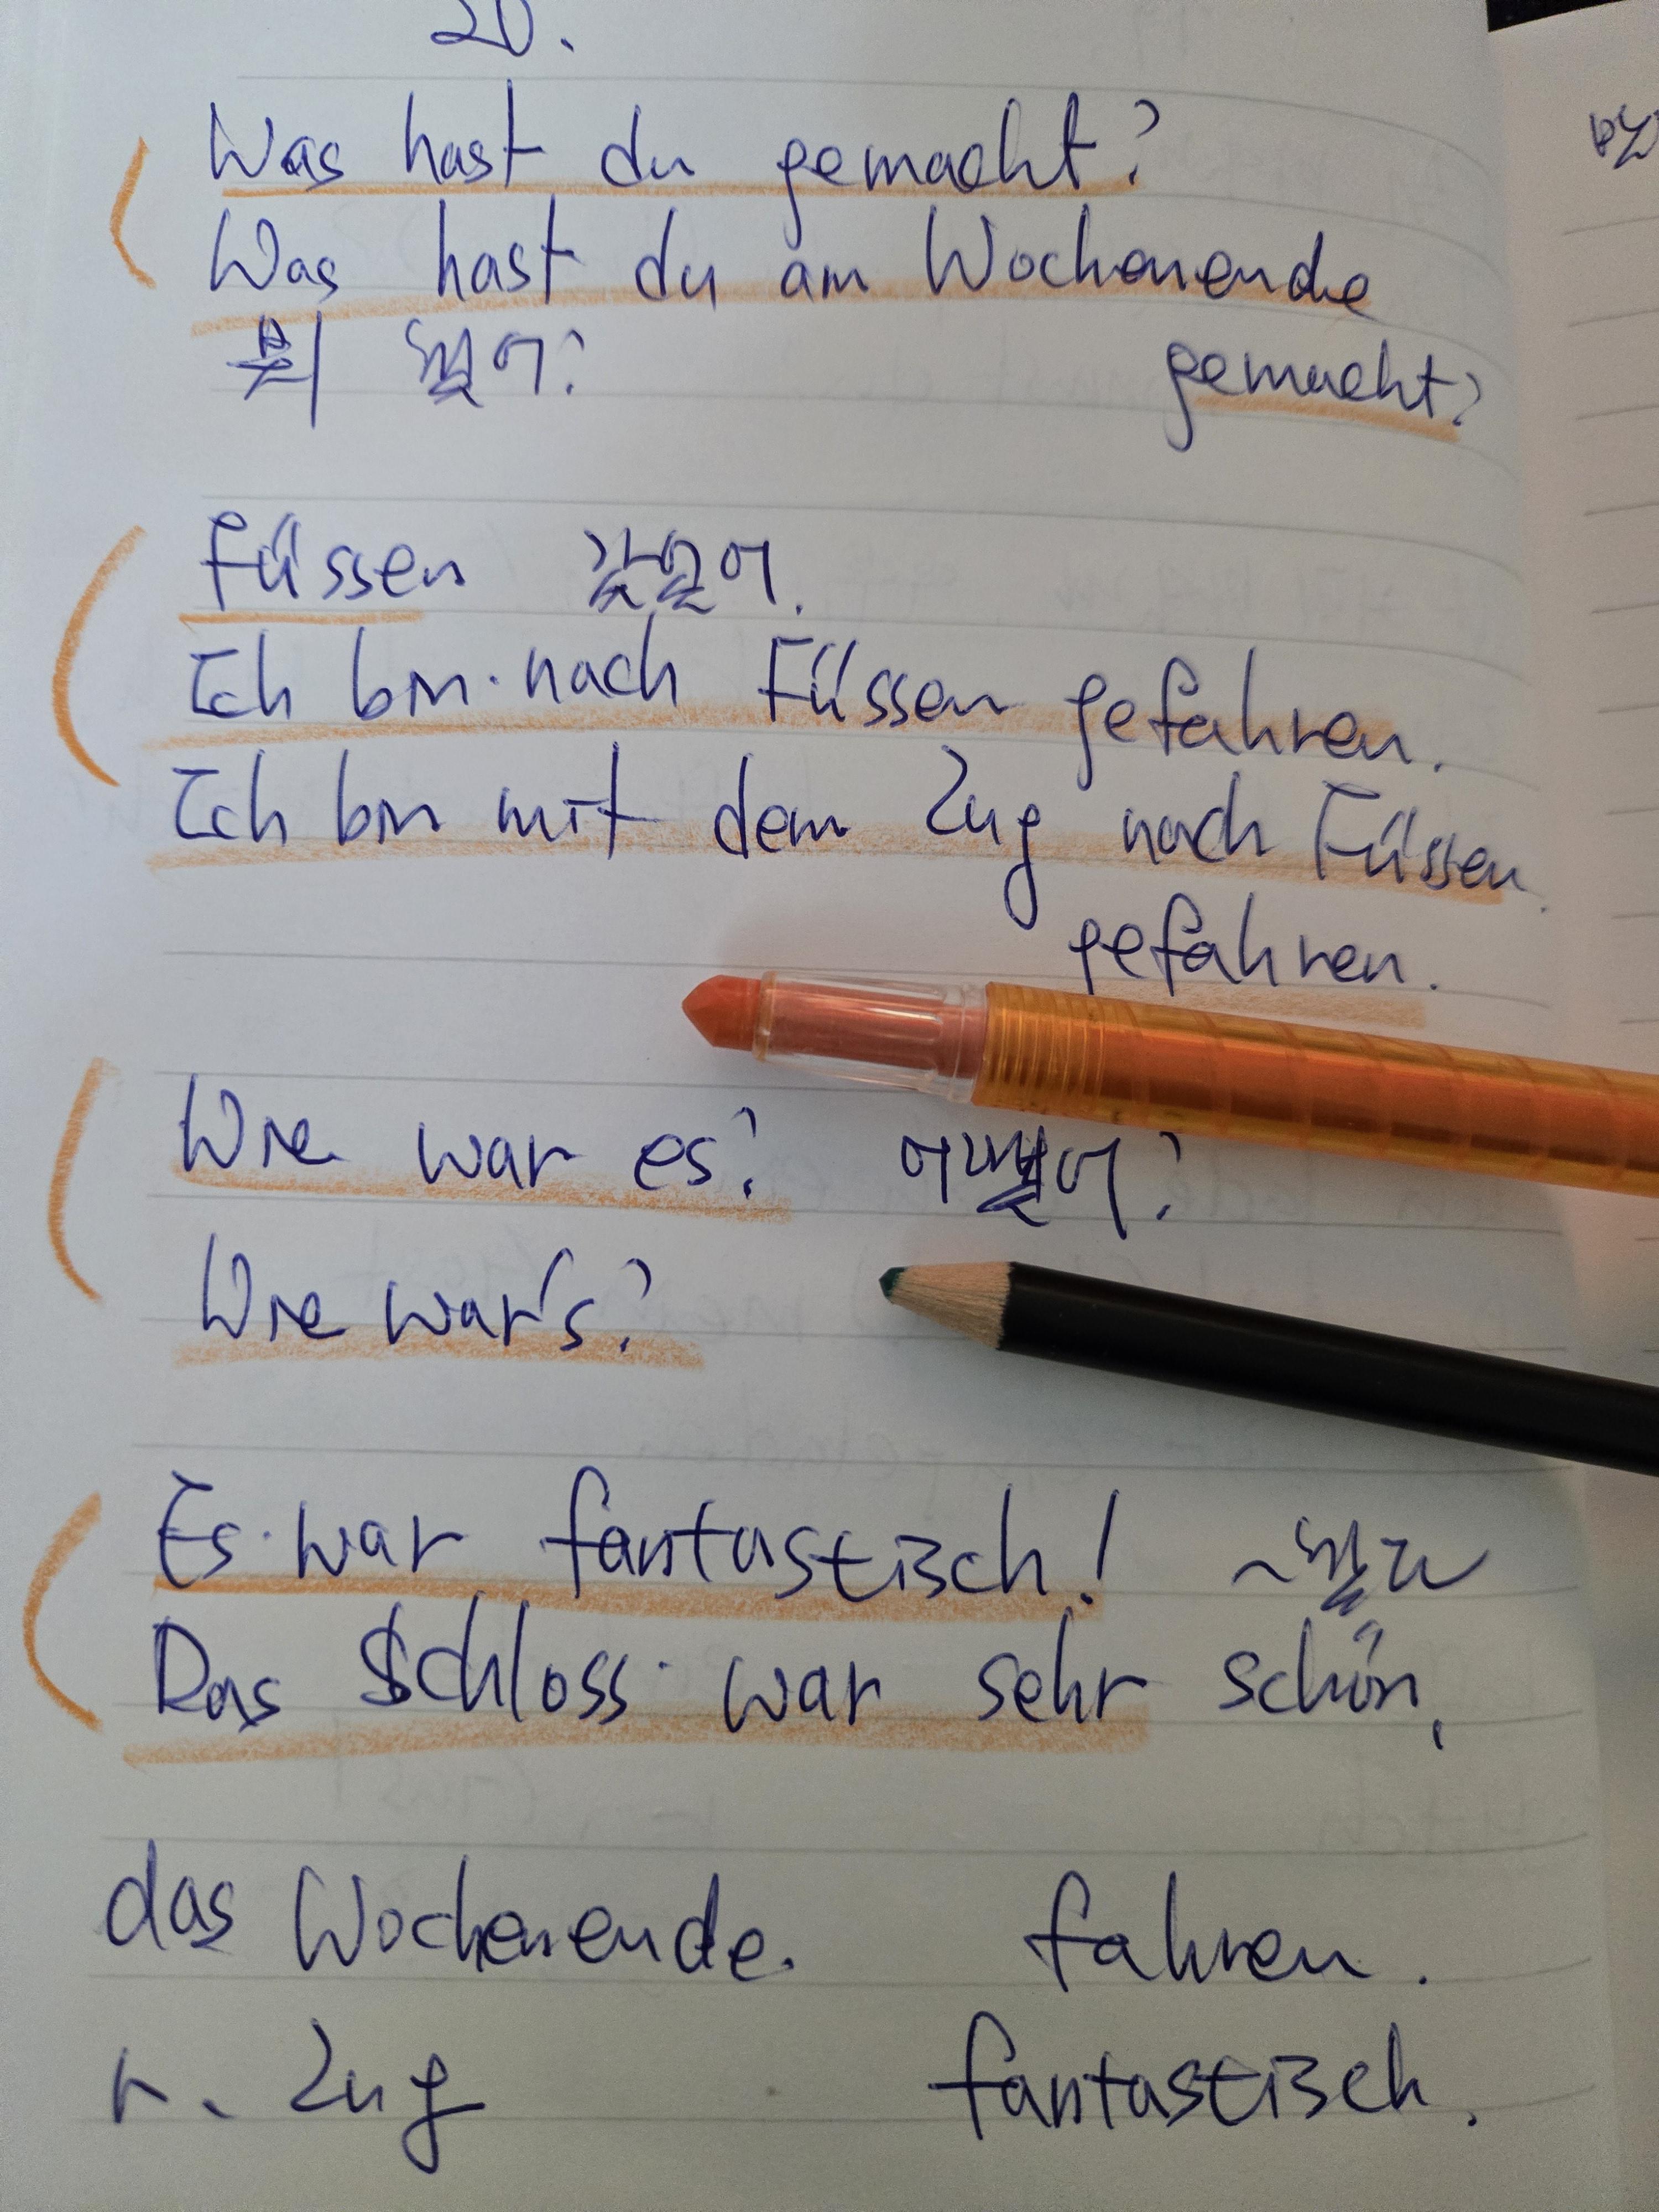 20.
Was hast du gemacht?
Was hast du am Wochenende
뭐 했어? gemacht?
Füssen 갔었어.
Ich bin nach Füssen gefahren.
Ich bin mit dem Zug nach Füssen.
gefahren.
Wie war es? 어땠어?
Wie war's?
Es war fantastisch! ~했고
Das Schloss war sehr schön.
das Wochenende. fahren.
r. Zug fantastisch.